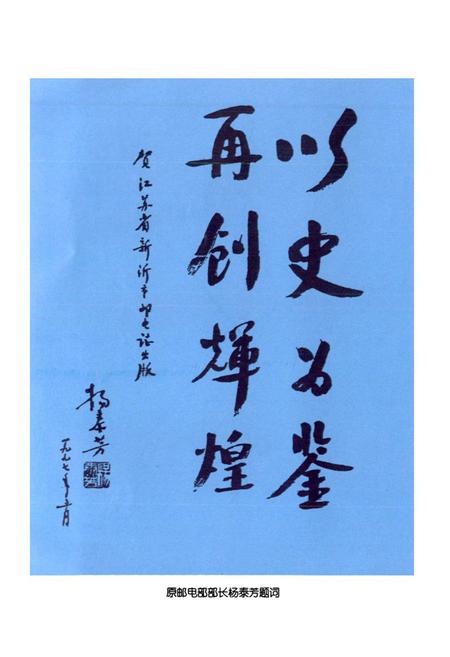 以史为鉴
再创輝煌
贺江苏省新沂市邮电志出版
杨泰芳
一九九七年五月
原邮电部部长杨泰芳题词